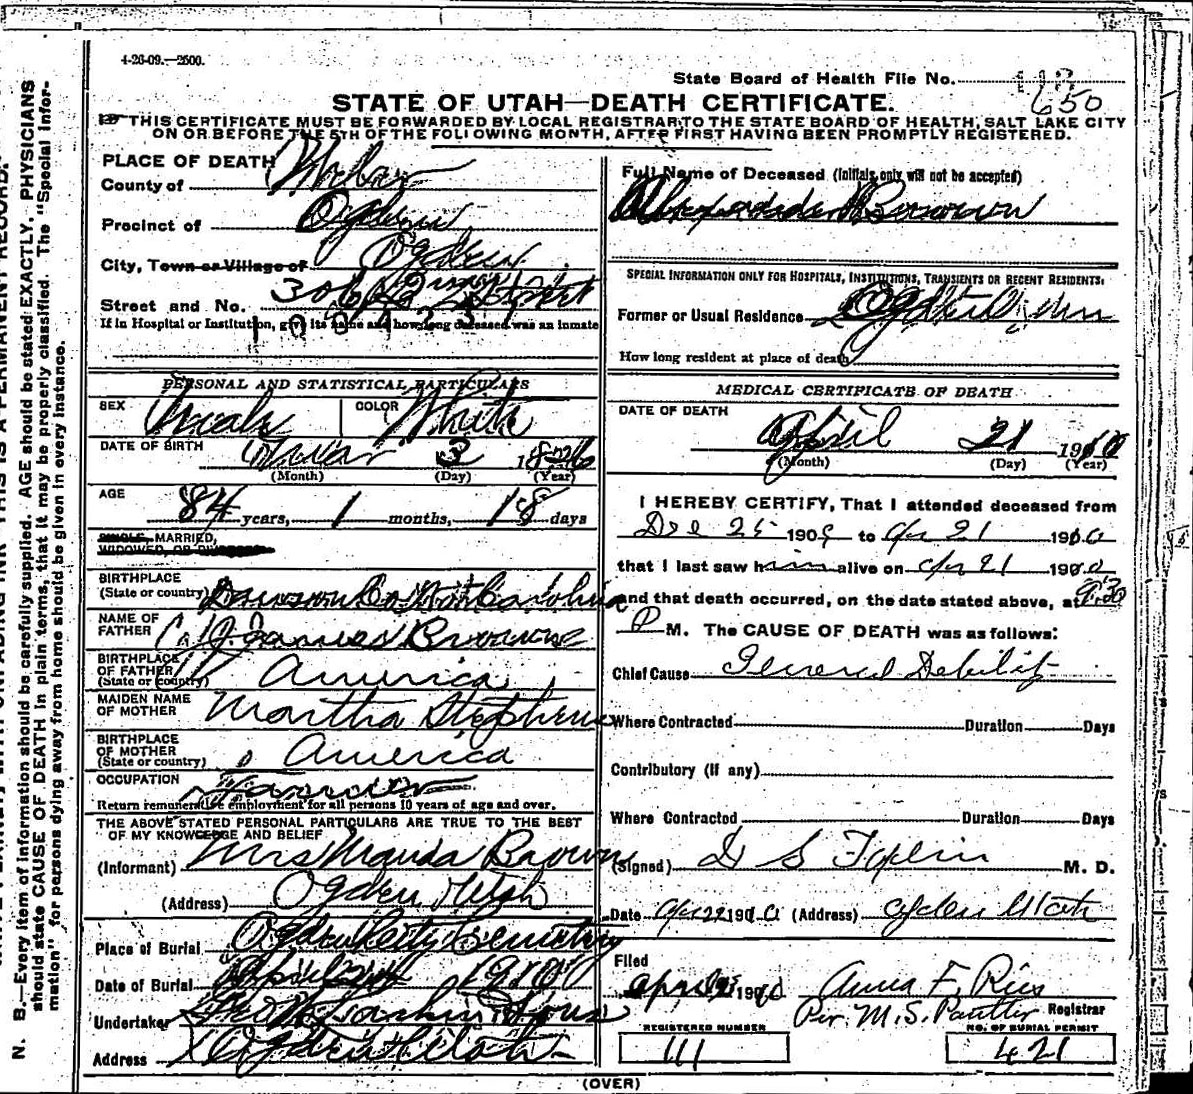 4-26-09.—2500.
State Board of Health File No.
650
STATE OF UTAH—DEATH CERTIFICATE.
THIS CERTIFICATE MUST BE FORWARDED BY LOCAL REGISTRAR TO THE STATE BOARD OF HEALTH, SALT LAKE CITY
ON OR BEFORE THE 5TH OF THE FOLLOWING MONTH, AFTER FIRST HAVING BEEN PROMPTLY REGISTERED.
PLACE OF DEATH
County of Weber
Precinct of Ogden
City, Town or Village of Ogden
Street and No.
If in Hospital or Institution, give its name and how long deceased was an inmate
PERSONAL AND STATISTICAL PARTICULARS
SEX Male COLOR White
DATE OF BIRTH 3
(Month) (Day) (Year)
AGE
84 years, 1 months, 18 days
SINGLE, MARRIED,
WIDOWED, OR DIVORCED
BIRTHPLACE
(State or country)
NAME OF
FATHER James Brown
BIRTHPLACE
OF FATHER
(State or country) America
MAIDEN NAME
OF MOTHER Martha Stephens
BIRTHPLACE
OF MOTHER
(State or country) America
OCCUPATION
Return remunerative employment for all persons 10 years of age and over.
THE ABOVE STATED PERSONAL PARTICULARS ARE TRUE TO THE BEST
OF MY KNOWLEDGE AND BELIEF
(Informant) Mrs Brown
(Address) Ogden Utah
Place of Burial Ogden City Cemetery
Date of Burial April 1910
Undertaker Sons
Address Ogden Utah
Full Name of Deceased (Initials only will not be accepted)
Brown
SPECIAL INFORMATION ONLY FOR HOSPITALS, INSTITUTIONS, TRANSIENTS OR RECENT RESIDENTS:
Former or Usual Residence
How long resident at place of death
MEDICAL CERTIFICATE OF DEATH
DATE OF DEATH
April 21 1910
(Month) (Day) (Year)
I HEREBY CERTIFY, That I attended deceased from
Dec 25 1909 to Apr 21 1910
that I last saw him alive on Apr 21 1910
and that death occurred, on the date stated above, at 9:30
P M. The CAUSE OF DEATH was as follows:
Chief Cause General Debility
Where Contracted Duration Days
Contributory (if any)
Where Contracted Duration Days
(Signed) M. D.
Date Apr 22 1910 (Address) Ogden Utah
Filed
April 1910 Anna F. Registrar
Per. M. S.
REGISTERED NUMBER
111
NO. OF BURIAL PERMIT
421
(OVER)
N. B.—Every item of information should be carefully supplied. AGE should be stated EXACTLY. PHYSICIANS
should state CAUSE OF DEATH in plain terms, that it may be properly classified. The "Special Infor-
mation" for persons dying away from home should be given in every instance.